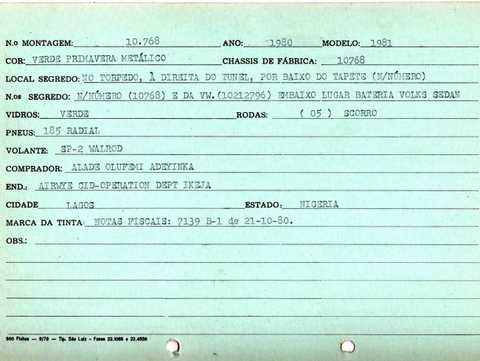 N.o MONTAGEM: 10.768 ANO: 1980 MODELO: 1981
COR: VERDE PRIMAVERA METÁLICO CHASSIS DE FÁBRICA: 10768
LOCAL SEGREDO: NO TORPEDO, À DIREITA DO TUNEL, POR BAIXO DO TAPETE (N/NÚMERO)
N.os SEGREDO: N/NÚMERO (10768) E DA VW.(10212796) EMBAIXO LUGAR BATERIA VOLKS SEDAN
VIDROS: VERDE RODAS: ( 05 ) SCORRO
PNEUS: 185 RADIAL
VOLANTE: SP-2 WALROD
COMPRADOR: ALADE OLUFEMI ADEYINKA
END.: AIRWYE CID-OPERATION DEPT IKEJA
CIDADE LAGOS ESTADO: NIGERIA
MARCA DA TINTA: NOTAS FISCAIS: 7139 B-1 de 21-10-80.
OBS.:
500 Fichas — 9/79 — Tip. São Luiz - Fones 22.1065 e 22.4536